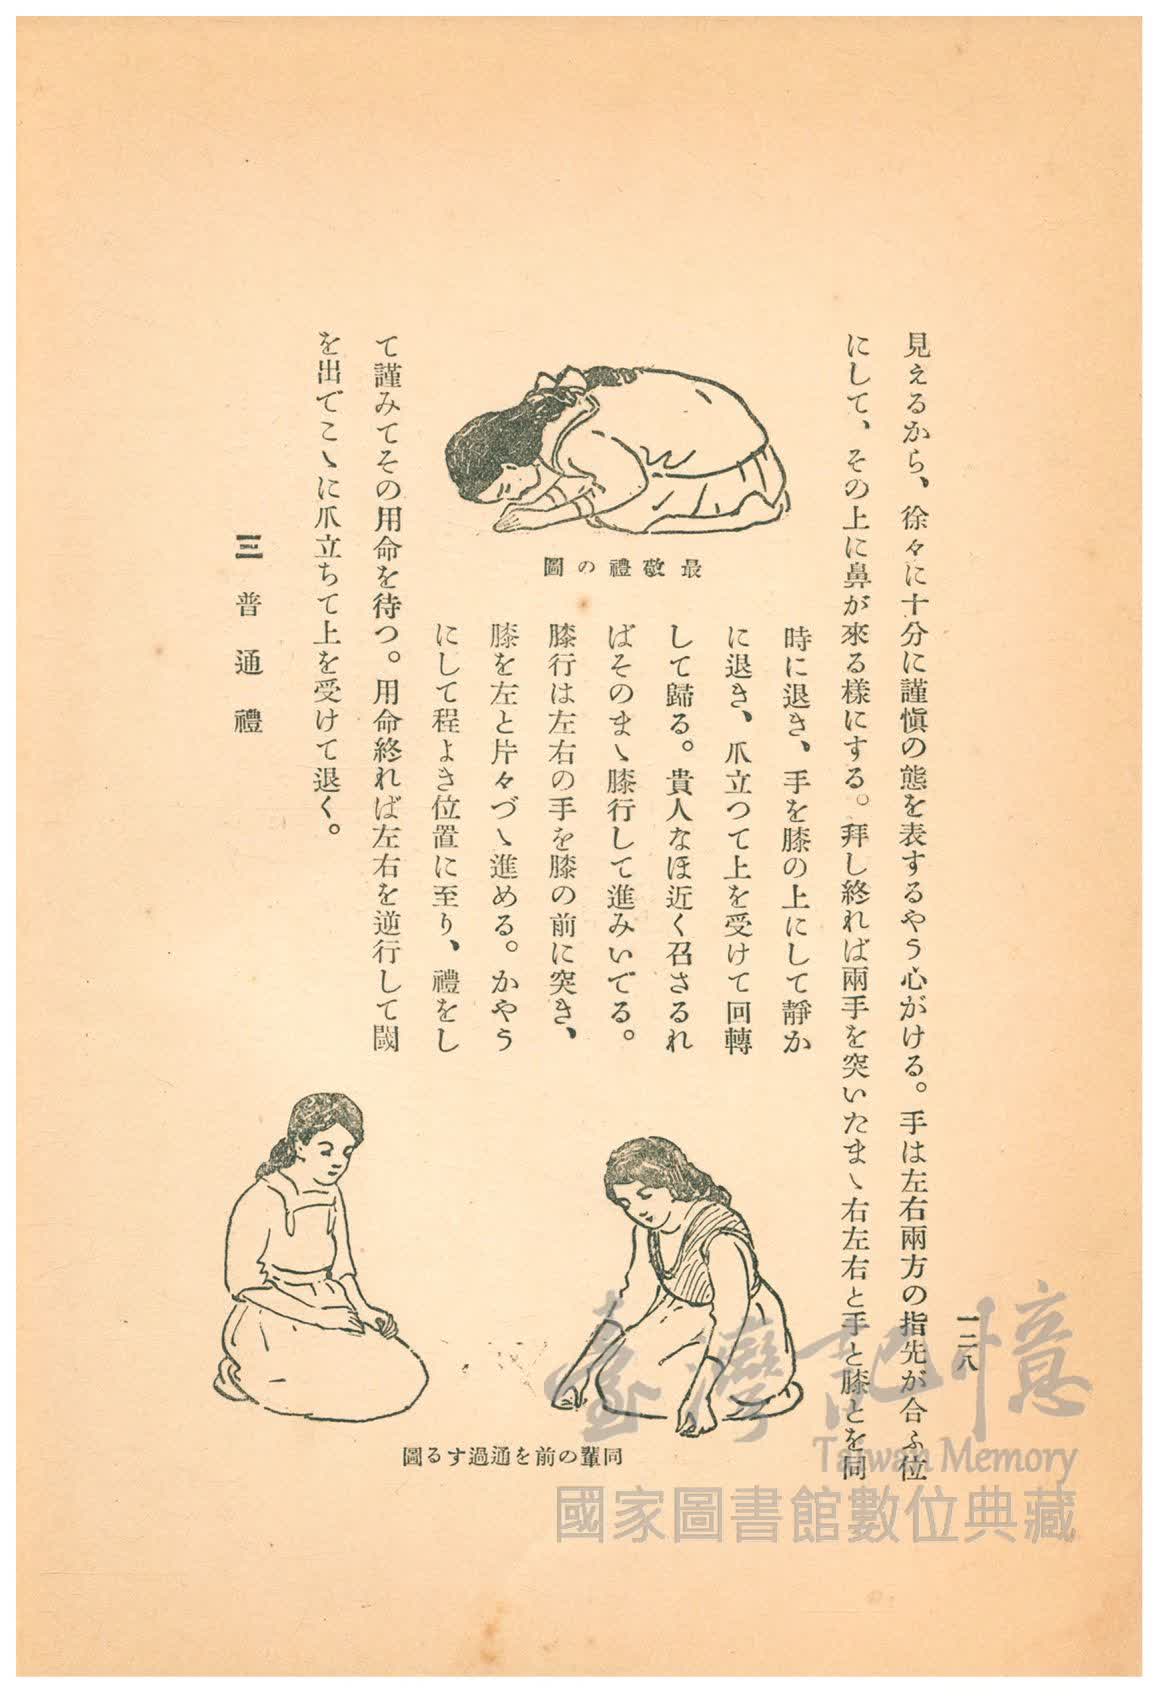 一二八
見えるから、徐々に十分に謹愼の態を表するやう心がける。手は左右兩方の指先が合ふ位
にして、その上に鼻が來る樣にする。拜し終れば兩手を突いたまゝ右左右と手と膝とを同
最敬禮の圖
時に退き、手を膝の上にして靜か
に退き、爪立つて上を受けて回轉
して歸る。貴人なほ近く召さるれ
ばそのまゝ膝行して進みいでる。
膝行は左右の手を膝の前に突き、
膝を左と片々づゝ進める。かやう
にして程よき位置に至り、禮をし
て謹みてその用命を待つ。用命終れば左右を逆行して閾
を出でこゝに爪立ちて上を受けて退く。
三 普通禮
同輩の前を通過する圖
臺灣記憶
Taiwan Memory
國家圖書館數位典藏